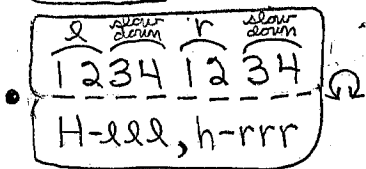 l slow down r slow down
12 34 12 34
H-lll, h-rrr